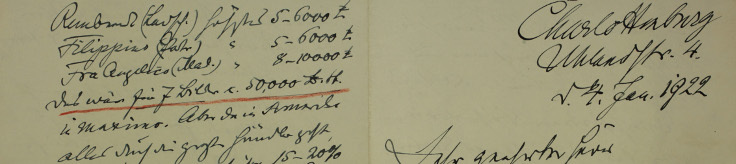 Rembrandt (Landsch.) höchstens 5–6000 £
Filippino ( ) " 5–6000 £
Fra Angelico (Mad.) " 8–10000 £
Das wäre für 7 Bilder c. 50,000
in maximo. Aber da in Amerika
alles durch die großen Händler geht,
15–20%
Charlottenburg
Uhlandstr. 4.
d. 4. Jan. 1922
Sehr geehrter Herr